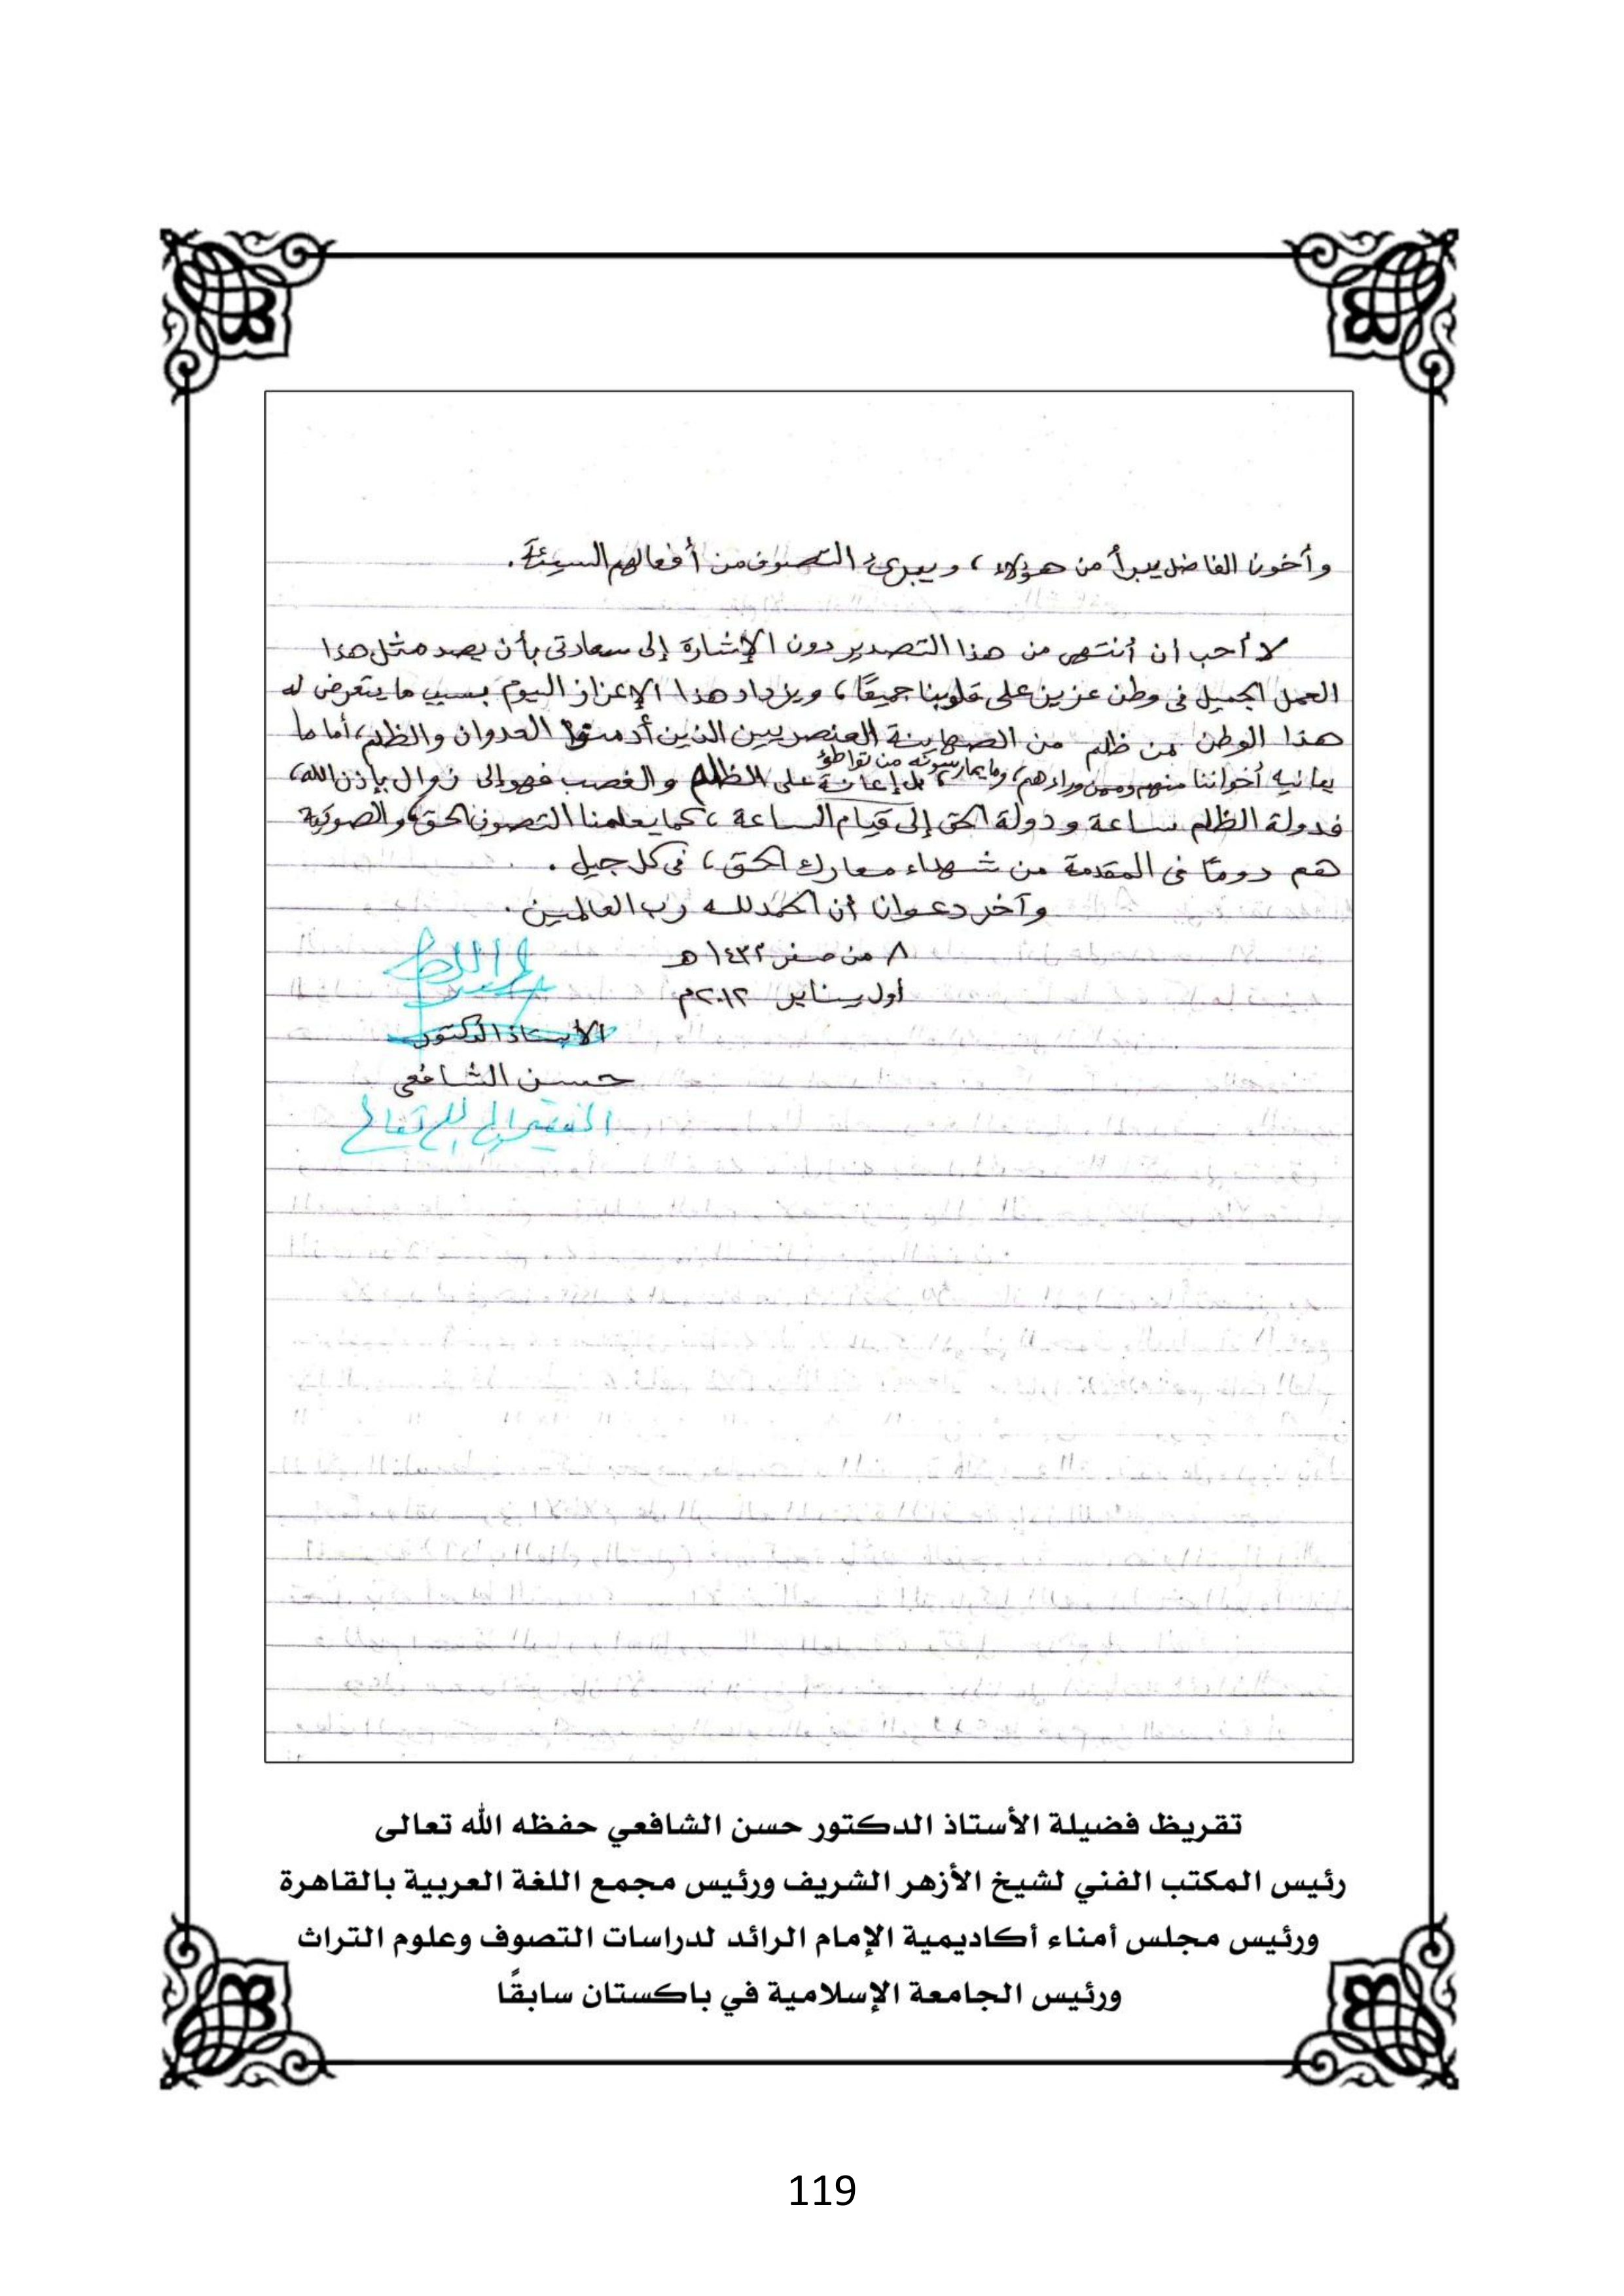 وأخونا الفاضل يبرأ من هؤلاء، ويبرئ التصوف من أفعالهم السيئة.
لا أحب أن أنتهى من هذا التصدير دون الإشارة إلى سعادتى بأن يصدر مثل هذا
العمل الجميل فى وطن عزيز على قلوبنا جميعًا، ويزداد هذا الإعزاز اليوم بسبب ما يتعرض له
هذا الوطن من ظلم من الصهاينة العنصريين الذين أدمنوا العدوان والظلم، أما ما
يعانيه أخواننا منهم وممن وراءهم، وما يمارسونه من تواطؤ بل إعانة على الظلم والغصب فهو إلى زوال بإذن الله،
فدولة الظلم ساعة ودولة الحق إلى قيام الساعة، كما يعلمنا التصوف الحق، والصوفية
هم دومًا فى المقدمة من شهداء معارك الحق، فى كل جيل.
وآخر دعوانا أن الحمد لله رب العالمين.
٨ من صفر ١٤٣٣هـ
أول يناير ٢٠١٢م
الأستاذ الدكتور
حسن الشافعى
الفقير إلى الله تعالى
تقريظ فضيلة الأستاذ الدكتور حسن الشافعي حفظه الله تعالى
رئيس المكتب الفني لشيخ الأزهر الشريف ورئيس مجمع اللغة العربية بالقاهرة
ورئيس مجلس أمناء أكاديمية الإمام الرائد لدراسات التصوف وعلوم التراث
ورئيس الجامعة الإسلامية في باكستان سابقًا
119